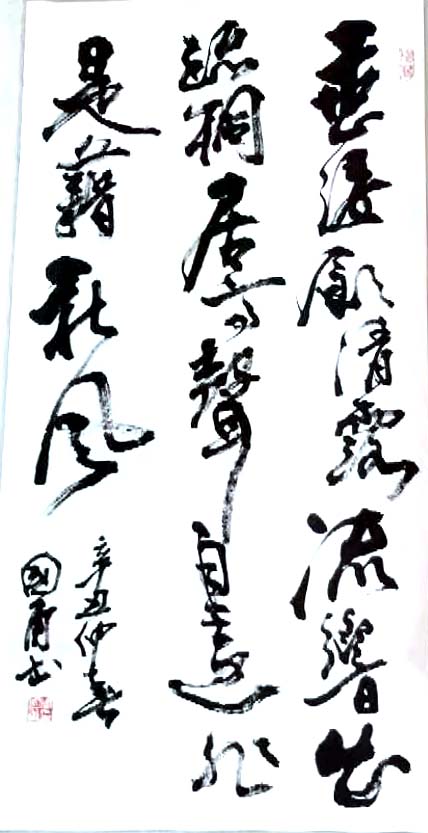 垂緌飲清露流響出
疏桐居高聲自遠非
是藉秋风
辛丑仲春
國书